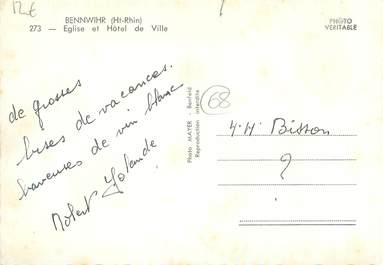 BENNWIHR (Ht-Rhin)
273 — Eglise et Hôtel de Ville
PHOTO
VERITABLE
de grosses
bises de vacances.
buveuses de vin blanc
Robert Yolande
Photo MAYER - Benfeld
Reproduction interdite
68
Bisson
?